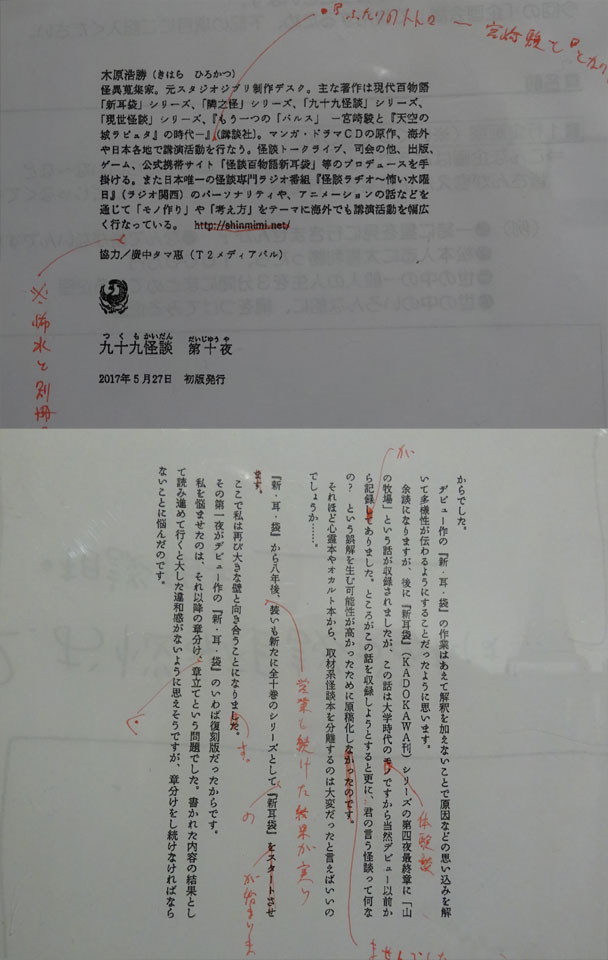 『ふたりのトトロ ー宮崎駿と『となり
木原浩勝（きはら ひろかつ）
怪異蒐集家。元スタジオジブリ制作デスク。主な著作は現代百物語
「新耳袋」シリーズ、「隣之怪」シリーズ、「九十九怪談」シリーズ、
「現世怪談」シリーズ、『もう一つの「バルス」 ー宮崎駿と『天空の
城ラピュタ』の時代ー』（講談社）。マンガ・ドラマＣＤの原作、海外
や日本各地で講演活動を行なう。怪談トークライブ、司会の他、出版、
ゲーム、公式携帯サイト「怪談百物語新耳袋」等のプロデュースを手
掛ける。また日本唯一の怪談専門ラジオ番組『怪談ラヂオ～怖い水曜
日』（ラジオ関西）のパーソナリティや、アニメーションの話などを
通じて「モノ作り」や「考え方」をテーマに海外でも講演活動を幅広
く行なっている。 http://shinmimi.net/
協力／慶中タマ惠（Ｔ２メディアパル）
※怖水と別冊
つくもかいだん だいじゅうや
九十九怪談 第十夜
2017年5月27日 初版発行
からでした。
デビュー作の『新・耳・袋』の作業はあえて解釈を加えないことで原因などの思い込みを解
いて多様性が伝わるようにすることだったように思います。
余談になりますが、後に『新耳袋』（ＫＡＤＯＫＡＷＡ刊）シリーズの第四夜最終章に「山
の牧場」という話が収録されましたが、この話は大学時代のモノですから当然デビュー以前か
ら記録してありました。ところがこの話を収録しようとすると更に、君の言う怪談って何な
の？ という誤解を生む可能性が高かったために原稿化しなかったのです。
それほど心霊本やオカルト本から、取材系怪談本を分離するのは大変だったと言えばいいの
でしょうか……。
が
体験談
ませんでした
『新・耳・袋』から八年後、装いも新たに全十巻のシリーズとして『新耳袋』をスタートさせ
ます。
営業し続けた結果が実り
の
が始まりま
ここで私は再び大きな壁と向き合うことになりました。
です。
その第一夜がデビュー作の『新・耳・袋』のいわば復刻版だったからです。
私を悩ませたのは、それ以降の章分け、章立てという問題でした。書かれた内容の結果とし
て読み進めて行くと大した違和感がないように思えそうですが、章分けをし続けなければなら
ないことに悩んだのです。